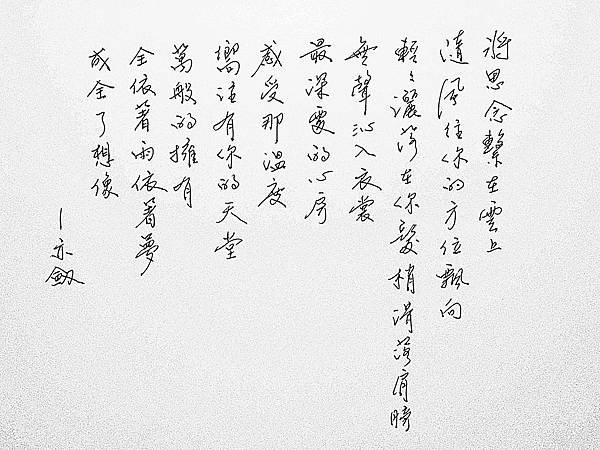 將思念繫在雲上
隨風往你的方位飄向
輕輕灑落在你髮梢滑落肩膀
無聲沁入衣裳
最深處的心房
感受那溫度
嚮往有你的天堂
萬般的擁有
全依著雨依著夢
成全了想像
—亦劔